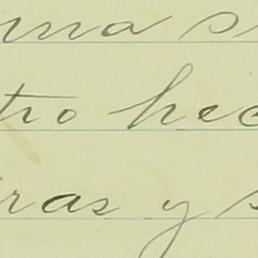 nna s
tro hec
ras y s